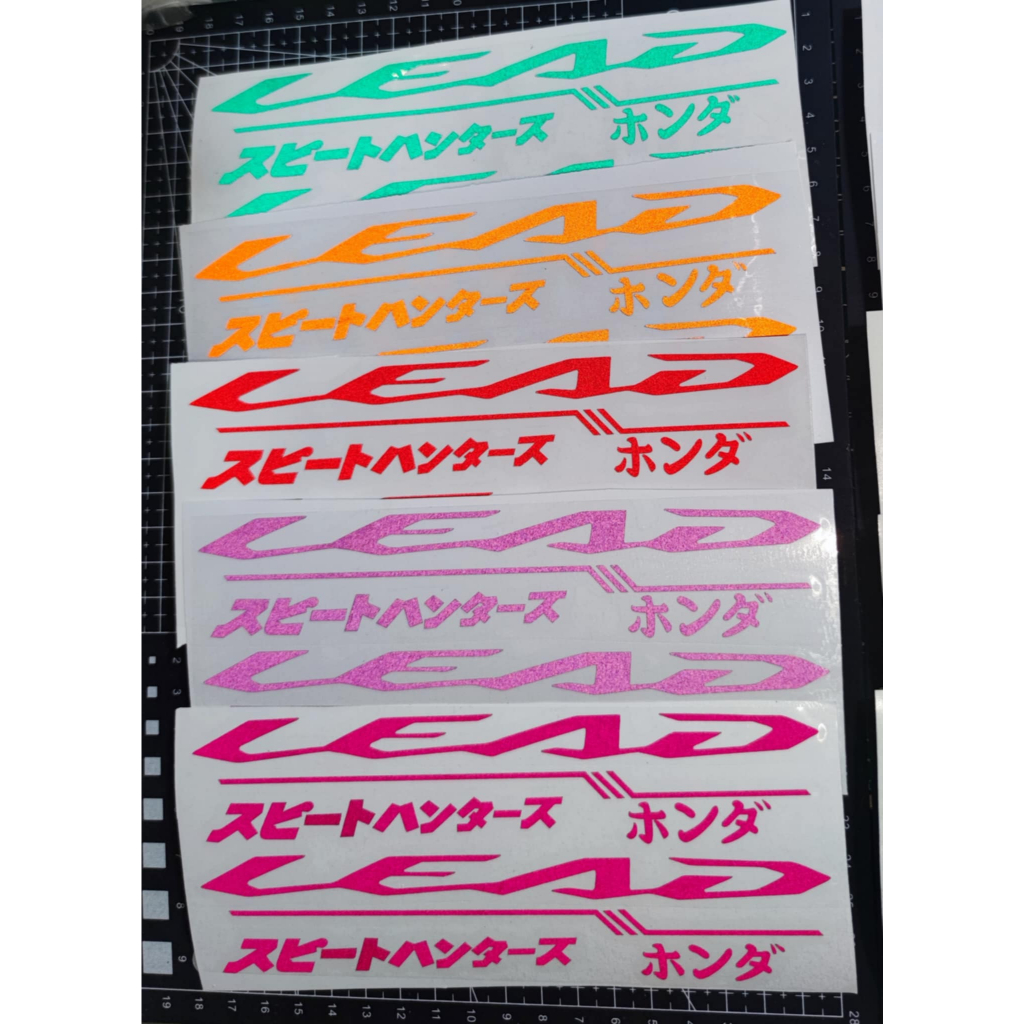 LEAD
スピートハンターズ ホンダ
LEAD
スピートハンターズ ホンダ
LEAD
スピートハンターズ ホンダ
LEAD
スピートハンターズ ホンダ
LEAD
LEAD
スピートハンターズ ホンダ
LEAD
スピートハンターズ ホンダ